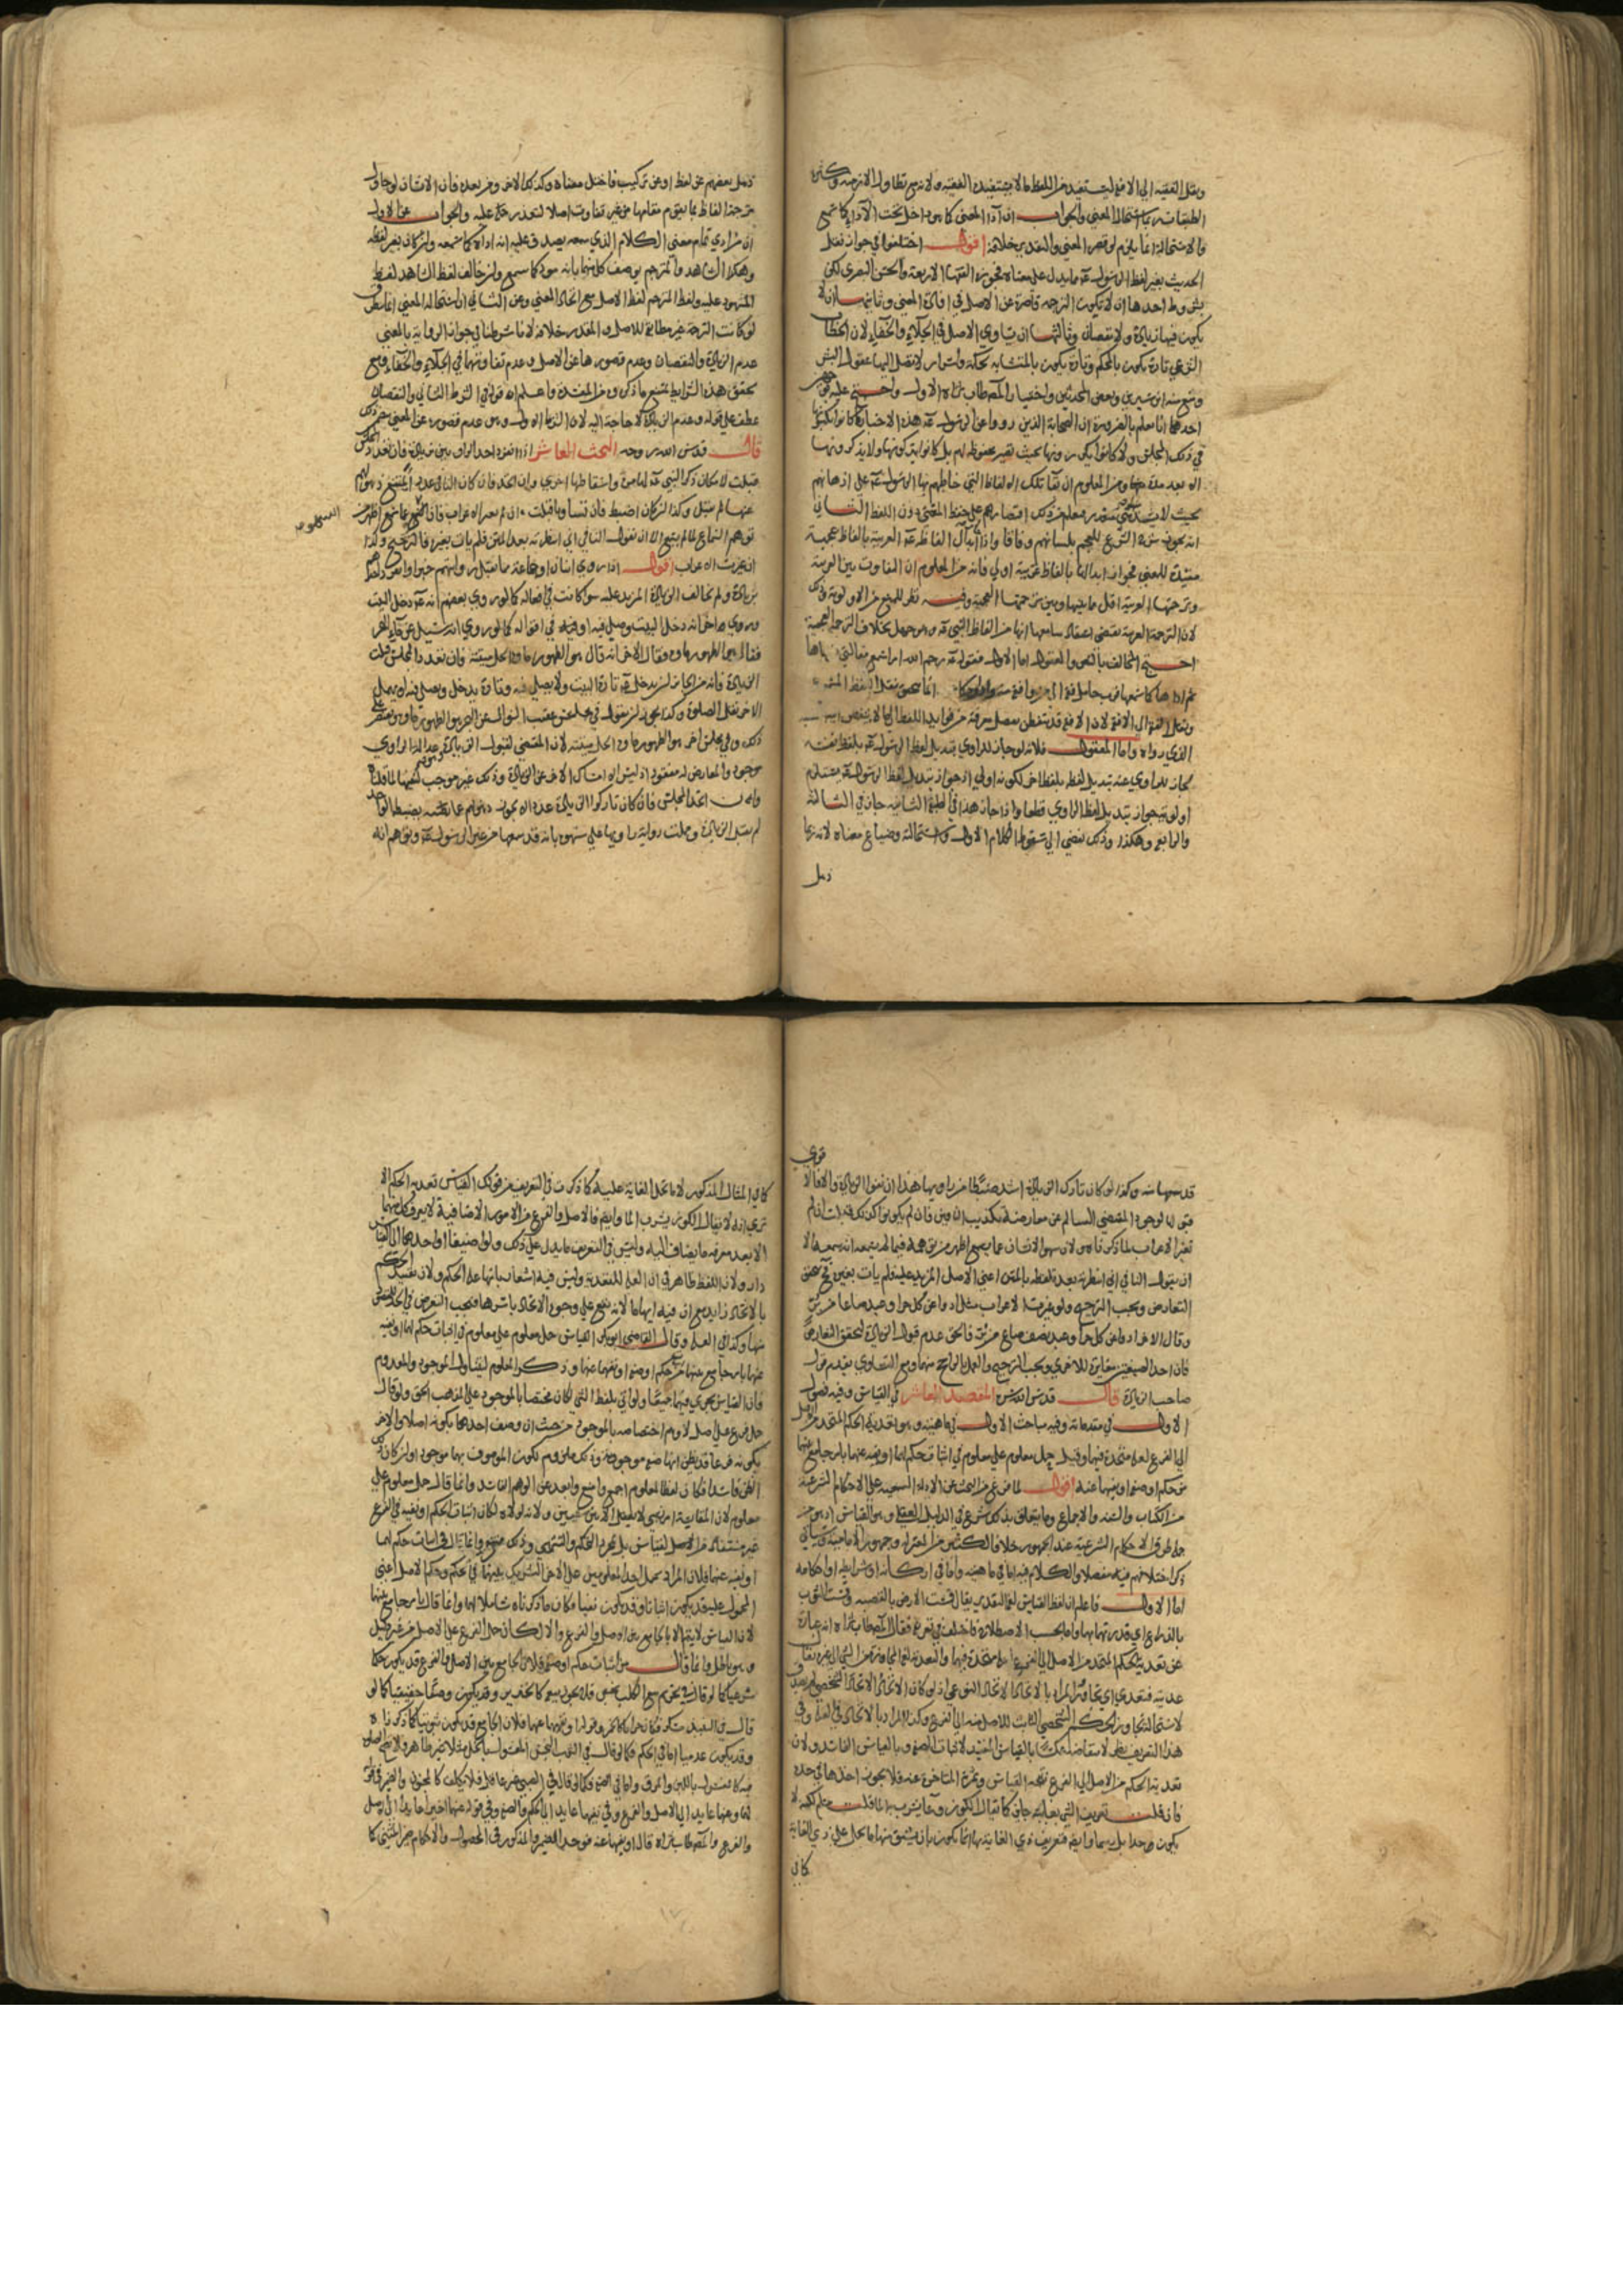 ونقل الفقيه الى الافقه ليستفيد من اللفظ ما لا يستفيده الفقيه ولانه مع تطاول الازمنه وكثرة
الطبقات استحالة المعنى والجواب ان اداء المعنى كما هو داخل تحت الاداء كما سمع
والاستحالة انما يلزم لو قصر المعنى والتقدير خلافه اقول اختلفوا في جواز نقل
الحديث بغير لفظ الرسول عم مما يدل على معناه فجوزه الفقهاء الاربعة والحسن البصري لكن
بشروط احدها ان لا يكون الترجمه قاصرة عن الاصل في افادة المعنى وثانيها ان لا
يكون فيها زيادة ولا نقصان وثالثها ان يساوي الاصل في الجلاء والخفاء لان الخطاب
الشرعي تارة يكون بالمحكم وتارة يكون بالمتشابه لحكمة واسرار لا تصل اليها عقول البشر
ومنع منه ابن سيرين وبعض المحدثين واختيار المصطاب ثراه الاول واحتج عليه
احدهما انا نعلم بالضرورة ان الصحابة الذين رووا عن الرسول عم هذه الاخبار ما كانوا يكتبونها
في ذلك المجلس ولا كانوا يكررونها بحيث تصير محفوظة لهم بل كانوا يتركونها ولا يذكرونها
الا بعد مدة ومن المعلوم ان بقاء تلك الالفاظ التي خاطبهم بها الرسول عم على اذهانهم
بحيث لا يشذ شي متعذر فعلم من ذلك اقتصارهم على حفظ المعنى دون اللفظ الثاني
انه يجوز شرح الشرع للعجم بلسانهم وفاقا واذا جاز ابدال الفاظه عم العربية بالفاظ عجمية
مفيدة للمعنى فجواز ابدالها بالفاظ عربية اولى فانه من المعلوم ان التفاوت بين العربية
وترجمتها العربية اقل مما بينها وبين ترجمتها العجمية وفيه نظر للمنع من الاولوية وذلك
لان الترجمة العربية تقتضي اعتقاد سامعها انها من الفاظ النبي عم وهو جهل بخلاف الترجمة العجمية
احتج المخالف بالنص والمعقول اما الاول فقوله عم رحم الله امرا سمع مقالتي فوعاها
ثم اداها كما سمعها فرب حامل فقه الى من هو افقه منه
ونقل الفقه الى الافقه لان الافقه قد يتفطن بفضل معرفته من فوايد اللفظ لما لا
الذي رواه واما المعقول فلانه لو جاز للراوي تبديل لفظ الرسول عم بلفظ نفسه
لجاز للراوي عنه تبديل لفظه بلفظ اخر لكونه اولى اذ جواز تبديل لفظ الرسول عم مستلزم
اولوية جواز تبديل لفظ الراوي قطعا واذا جاز هذا في الطبقة الثانيه جاز في الثالثة
والرابع وهكذا وذلك يفضي الى سقوط الكلام الاول واستحالته وضياع معناه لانه ربما
ذهل
ذهل بعضهم عن لفظ او عن تركيب فاختل معناه وكذلك الاخر ومن بعده فان الانسان لو حاول
ترجمة الفاظ بما يقوم مقامها من غير تفاوت اصلا لتعذر عليه والجواب عن الاول
ان من ادى تمام معنى الكلام الذي سمعه يصدق عليه انه اداه كما سمعه وان كان بغير لفظه
وهكذا الشاهد والمترجم يوصف كل منهما بانه مود كما سمع وان خالف لفظ الشاهد لفظ
المشهود عليه ولفظ المترجم لفظ الاصل مع اتحاد المعنى وعن الثاني ان استحالة المعنى انما يتطرق
لو كانت الترجمة غير مطابقة للاصل والتقدير خلافه لانا شرطنا في جواز الرواية بالمعنى
عدم الزيادة والنقصان وعدم قصورها عن الاصل وعدم تفاوتهما في الجلاء والخفاء فمع
تحقق هذه الشرايط يمتنع ما ذكروه من المفسدة واعلم ان قوله في الشرط الثاني والنقصان
عطف على قوله وعدم الزيادة لا حاجة اليه لان الشرط الاول وهو عدم قصوره عن المعنى
قال قدس الله روحه البحث العاشر اذا انفرد احد الراويين بزيادة فان تعدد المجلس
قبلت لامكان ذكر النبي عم لها مرة واسقاطها اخرى وان اتحد فان كان الناقص عددا يمتنع ذهولهم
عنها لم تقبل وكذا ان كان اضبط فان تساويا قبلت ان لم يغير الاعراب فان السهو عما سمع اظهر من
السهو
توهم السماع لما لم يسمع الا ان يقول الثاني اني انتظرته بعد المتن فلم يات بغيره فالترجيح وكذا
ان غيرت الاعراب اقول اذا روى اثنان او جماعة ممن يقبل روايتهم خبرا وانفرد احدهم
بزيادة ولم تخالف الزيادة المزيد عليه سواء كانت في افعاله كما لو روى بعضهم انه عم دخل البيت
وروى اخر انه دخل البيت وصلى فيه او في اقواله كما لو روى انه سئل عن ماء البحر
فقال هو الطهور ماؤه وقال الاخر انه قال هو الطهور ماؤه الحل ميتته فان تعدد المجلس قبلت
الزيادة فانه من الجايز ان يدخل عم تارة البيت ولا يصلي فيه وتارة يدخل ويصلي فيه
وكذا يجوز ان يقول في مجلس عقيب السوال عن البحر هو الطهور ماؤه ويقتصر على
ذلك وفي مجلس اخر هو الطهور ماؤه الحل ميتته لان المقتضي لقبول الزيادة وهو عدالة الراوي
موجود والمعارض له مفقود اذ ليس الا امساك الاخر عن الزيادة وذلك غير موجب
وان اتحد المجلس فان كان تاركوا الزيادة عددا لا يجوز ذهولهم عما يضبطه الواحد
لم تقبل الزيادة وحملت رواية راويها على سهوه بانه قد سمعها من غير الرسول عم وتوهم انه
قوي
قد سمعها منه وكذا لو كان تارك الزيادة اشد ضبطا من راويها هذا ان نفوا الزيادة والا فالاقوى
قبولها لوجود المقتضى السالم عن معارضة تكذيب ان لم
تغير الاعراب لما ذكرناه من ان سهو الانسان عما سمع اظهر من توهمه فيما لم يسمعه انه سمعه الا
ان يقول الثاني اني انتظرته بعد لفظه بالمتن اعني الاصل المزيد عليه فلم يات بغيره تحقق
التعارض ويجب الترجيح ولو غيرت الاعراب مثل ادوا عن كل حر او عبد صاعا من بر
وقال الاخر ادوا عن كل حر او عبد نصف صاع من بر فالحق عدم قبول الزيادة لتحقق التعارض
فان احد الصيغتين مغايرة للاخرى ويجب الترجيح والعمل بالراجح منهما ومع التساوي يقدم قول
صاحب الزيادة قال قدس الله سره المقصد العاشر في القياس وفيه فصول
الاول في مقدماته وفيه مباحث الاول في ماهيته وهو تعدية الحكم المتحد من الاصل
الى الفرع لعلة متحدة فيهما وقيل حمل معلوم على معلوم في اثبات حكم لهما او نفيه عنهما بامر جامع بينهما
من حكم او صفة او نفيهما عنه اقول لما فرغ من البحث عن الادلة السمعية على الاحكام الشرعية
من الكتاب والسنه والاجماع وما يتعلق بذلك شرع في الدليل العقلي وهو القياس اذ هو من
جملة طرق الاحكام الشرعية عند الجمهور خلافا لكثير من المعتزله وجمهور الامامية وسياتي
ذكر اختلافهم فيه مفصلا والكلام فيه اما في ماهيته واما في اركانه او شرايطه او احكامه
اما الاول فاعلم ان لفظ القياس لغة التقدير يقال قست الارض بالقصبه وقست الثوب
بالذراع اي قدرته بهما واما بحسب الاصطلاح فاختلف في تعريفه فقال المصطاب ثراه انه عبارة
عن تعدية الحكم المتحد من الاصل الى الفرع لعلة متحدة فيهما والتعدية لغة المجاوزة من الشي الى غيره يقال
عديته فتعدى اي تجاوز والمراد بالاتحاد الاتحاد النوعي اذ لو كان الاتحاد الاتحاد الشخصي لم يصدق
لاستحالة تجاوز الحكم الشخصي الثابت للاصل منه الى الفرع وكذا المراد بالاتحاد في العلة وفي
هذا التعريف نظر لانتقاضه بالقياس المفيد لاثبات الصفة وبالقياس الفاسد ولان
تعدية الحكم من الاصل الى الفرع نتيجة القياس وثمرته المتاخرة عنه فلا يجوز اخذها في حده
فان قلت تعريف الشي بغايته جايز كما يقال الكوز وعاء يشرب به الماء قلت مسلم لكنه لا
يكون حدا بل رسما وايضا فتعريف ذي الغاية بها انما يكون بان يشتق منها ما يحمل على ذي الغاية
كما في
كما في المثال المذكور لا بان تحمل الغاية عليه كما ذكرت في التعريف من قولك القياس تعدية الحكم الا
ترى انه لا يقال الكوز يشرب الماء وايضا فالاصل والفرع من الامور الاضافية لا يعرف كل منهما
الا بعد معرفة ما يضاف اليه وليس في التعريف ما يدل على ذلك ولو اضيفا او احدهما الى القياس
دار ولان اللفظ ظاهر في ان العلة للتعدية وليس فيه اشعار بانها علة الحكم ولان تقييد الحكم
بالاتحاد زايد مع ان فيه ايهاما
منها وكذا في العلة وقال القاضي ابو بكر القياس حمل معلوم على معلوم في اثبات حكم لهما او نفيه
عنهما بامر جامع بينهما من حكم او صفة او نفيهما عنهما وذكر المعلوم ليتناول الموجود والمعدوم
فان القياس يجري فيهما جميعا ولو اتى بلفظ الشي لكان مختصا بالموجود على المذهب الحق ولو قال
حمل فرع على اصل لاوهم اختصاصه بالموجود من حيث ان وصف احدهما بكونه اصلا والاخر
بكونه فرعا قد يظن انها صفة موجودة وذلك ملزوم بكون الموصوف بهما موجودا وان كان ذلك
الظن فاسدا فكان لفظ المعلوم اجمع وامنع وابعد عن الوهم الفاسد وانما قال حمل معلوم على
معلوم لان المقايسة لا تعقل الا بين شيئين ولانه لولاه لكان اثبات الحكم او نفيه في الفرع
غير مستفاد من الاصل لقياس بل بمجرد التحكم والتشهي وذلك ممتنع وانما قال في اثبات حكم لهما
او نفيه عنهما فلان المراد بحمل احد المعلومين على الاخر التشريك بينهما في حكم وحكم الاصل اعني
المحمول عليه قد يكون اثباتا وقد يكون نفيا وكان ما ذكرناه شاملا لهما وانما قال بامر جامع بينهما
لان القياس لا يتم الا بالجامع بين الاصل والفرع والا لكان حمل الفرع على الاصل من غير دليل
وهو باطل وانما قال من اثبات حكم او صفة فلان الجامع بين الاصل والفرع قد يكون حكما
شرعيا كما لو قال في تحريم بيع الكلب نجس فلا يجوز بيعه كالخنزير وقد يكون وصفا حقيقيا كما لو
قال في النبيذ مسكر فكان حراما كالخمر وقوله او نفيهما عنهما فلان الجامع قد يكون ثبوتيا كما ذكرناه
وقد يكون عدميا اما في الحكم فكما لو قال في الثوب النجس المغسول بالخل مثلا غير طاهر فلا تصح الصلوة
فيه كما لمغسول باللبن والمرق واما في الصفة فكما لو قال في الصبي غير عاقل فلا يكلف كالمجنون والضمير في قوله
لهما وعنهما عايد الى الاصل والفرع وفي نفيهما عايد الى الحكم والصفة وفي قوله عنهما اخيرا عايد الى الاصل
والفرع والمصطاب ثراه قال او نفيهما عنه فوحد الضمير والمذكور في المحصول والاحكام ضمير المثنى كما